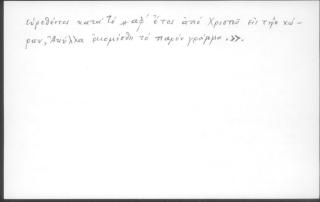 εὑρεθέντος κατὰ τὸ ͵αφ' ἔτος ἀπὸ Χριστοῦ εἰς τὴν χώ-
ραν, Ἀκύλλᾳ ἐκομίσθη τὸ παρὸν γράμμα.».